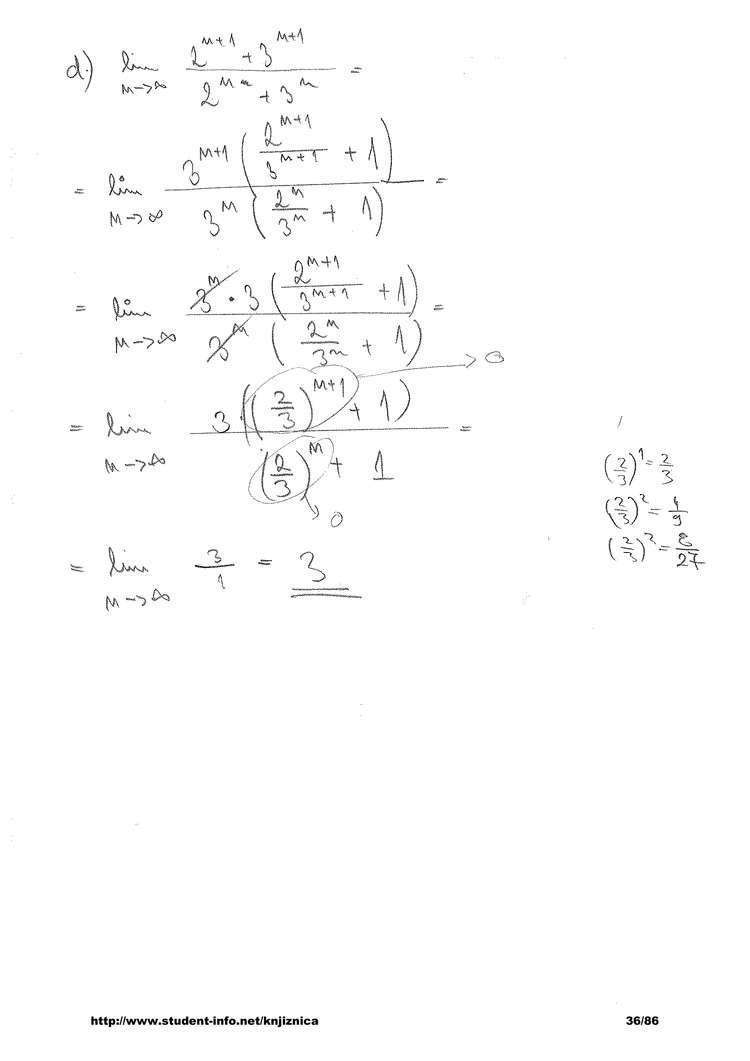 d.) lim n->∞ (2^(n+1) + 3^(n+1)) / (2^n + 3^n) =
= lim n->∞ 3^(n+1) (2^(n+1)/3^(n+1) + 1) / 3^n (2^n/3^n + 1) =
= lim n->∞ 3^n · 3 (2^(n+1)/3^(n+1) + 1) / 3^n (2^n/3^n + 1) =
-> 0
= lim n->∞ 3((2/3)^(n+1) + 1) / (2/3)^n + 1 =
-> 0
(2/3)^1 = 2/3
(2/3)^2 = 4/9
(2/3)^2 = 8/27
= lim n->∞ 3/1 = 3
http://www.student-info.net/knjiznica
36/86